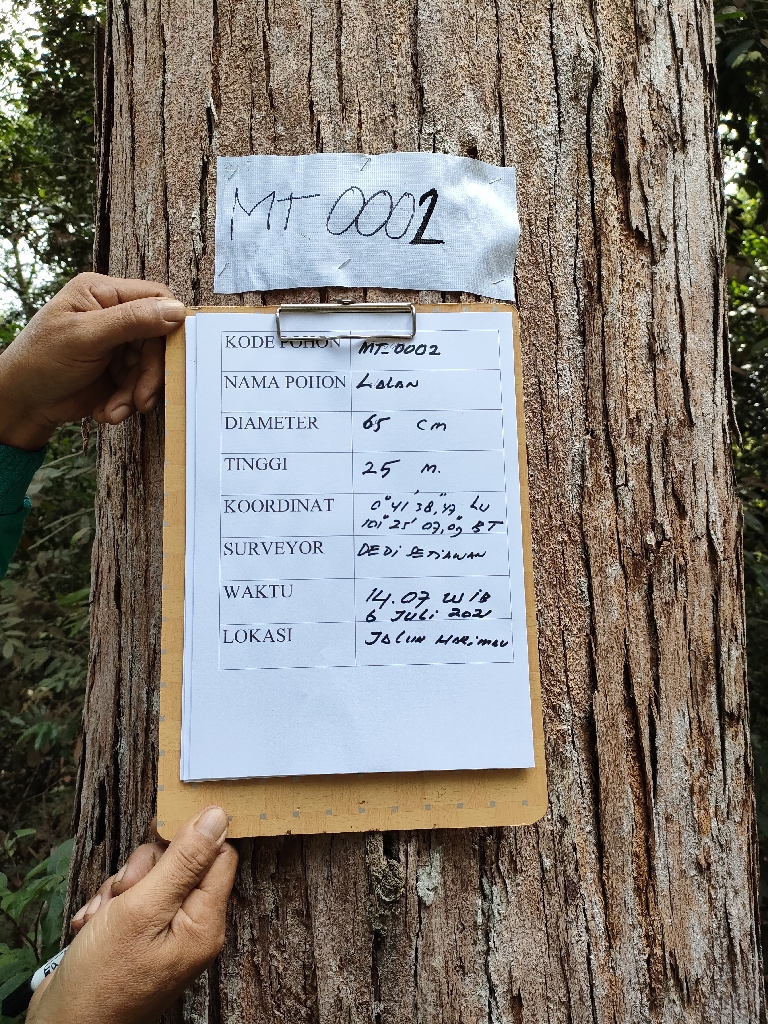 MT 0002
KODE POHON MT-0002
NAMA POHON LALAN
DIAMETER 65 cm
TINGGI 25 m.
KOORDINAT 0° 41' 38,47" LU
101° 25' 07,07" BT
SURVEYOR DEDI SETIAWAN
WAKTU 14.07 WIB
6 JULI 2021
LOKASI JALUR HARIMAU